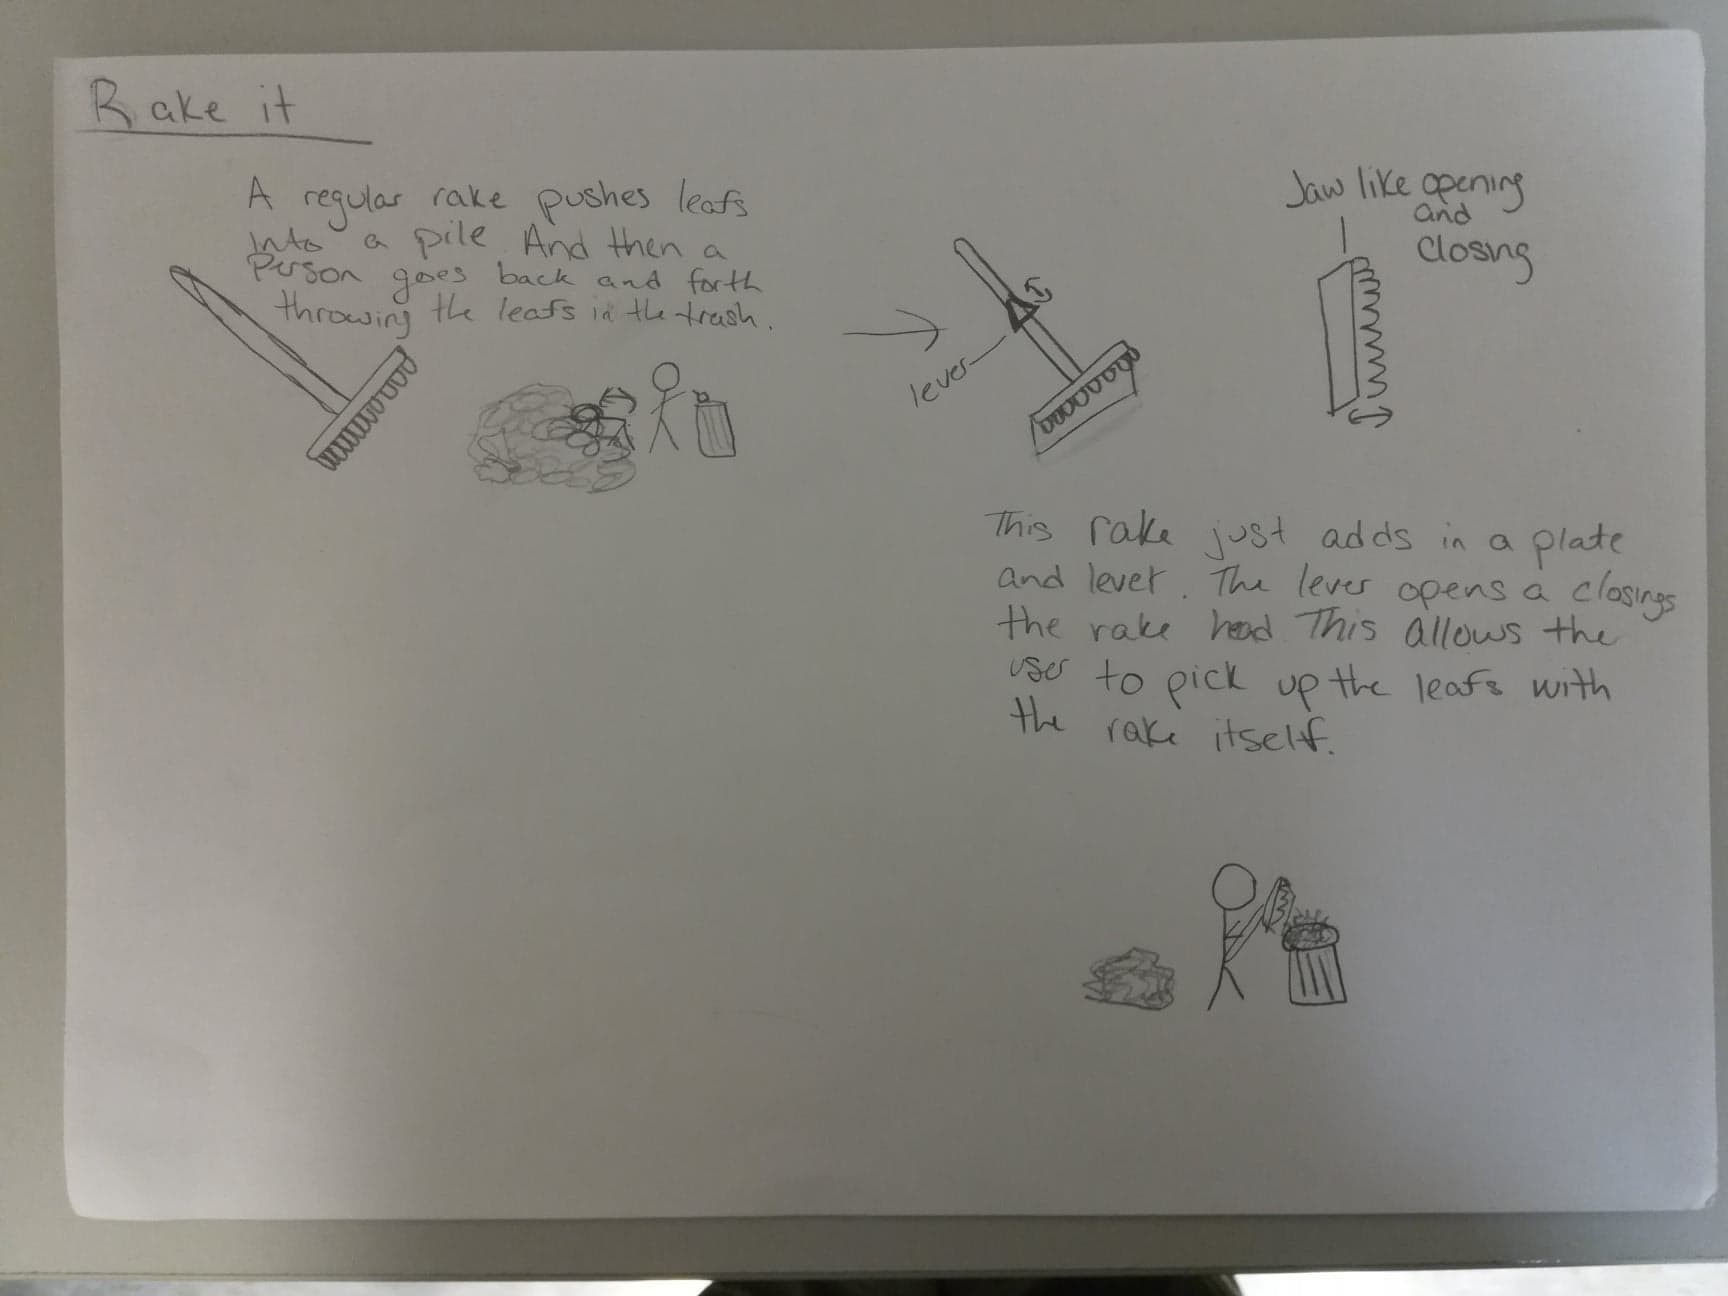 Rake it
A regular rake pushes leafs
into a pile. And then a
Person goes back and forth
throwing the leafs in the trash.
lever
Jaw like opening
and
Closing
This rake just adds in a plate
and lever. The lever opens a closings
the rake head. This allows the
user to pick up the leafs with
the rake itself.